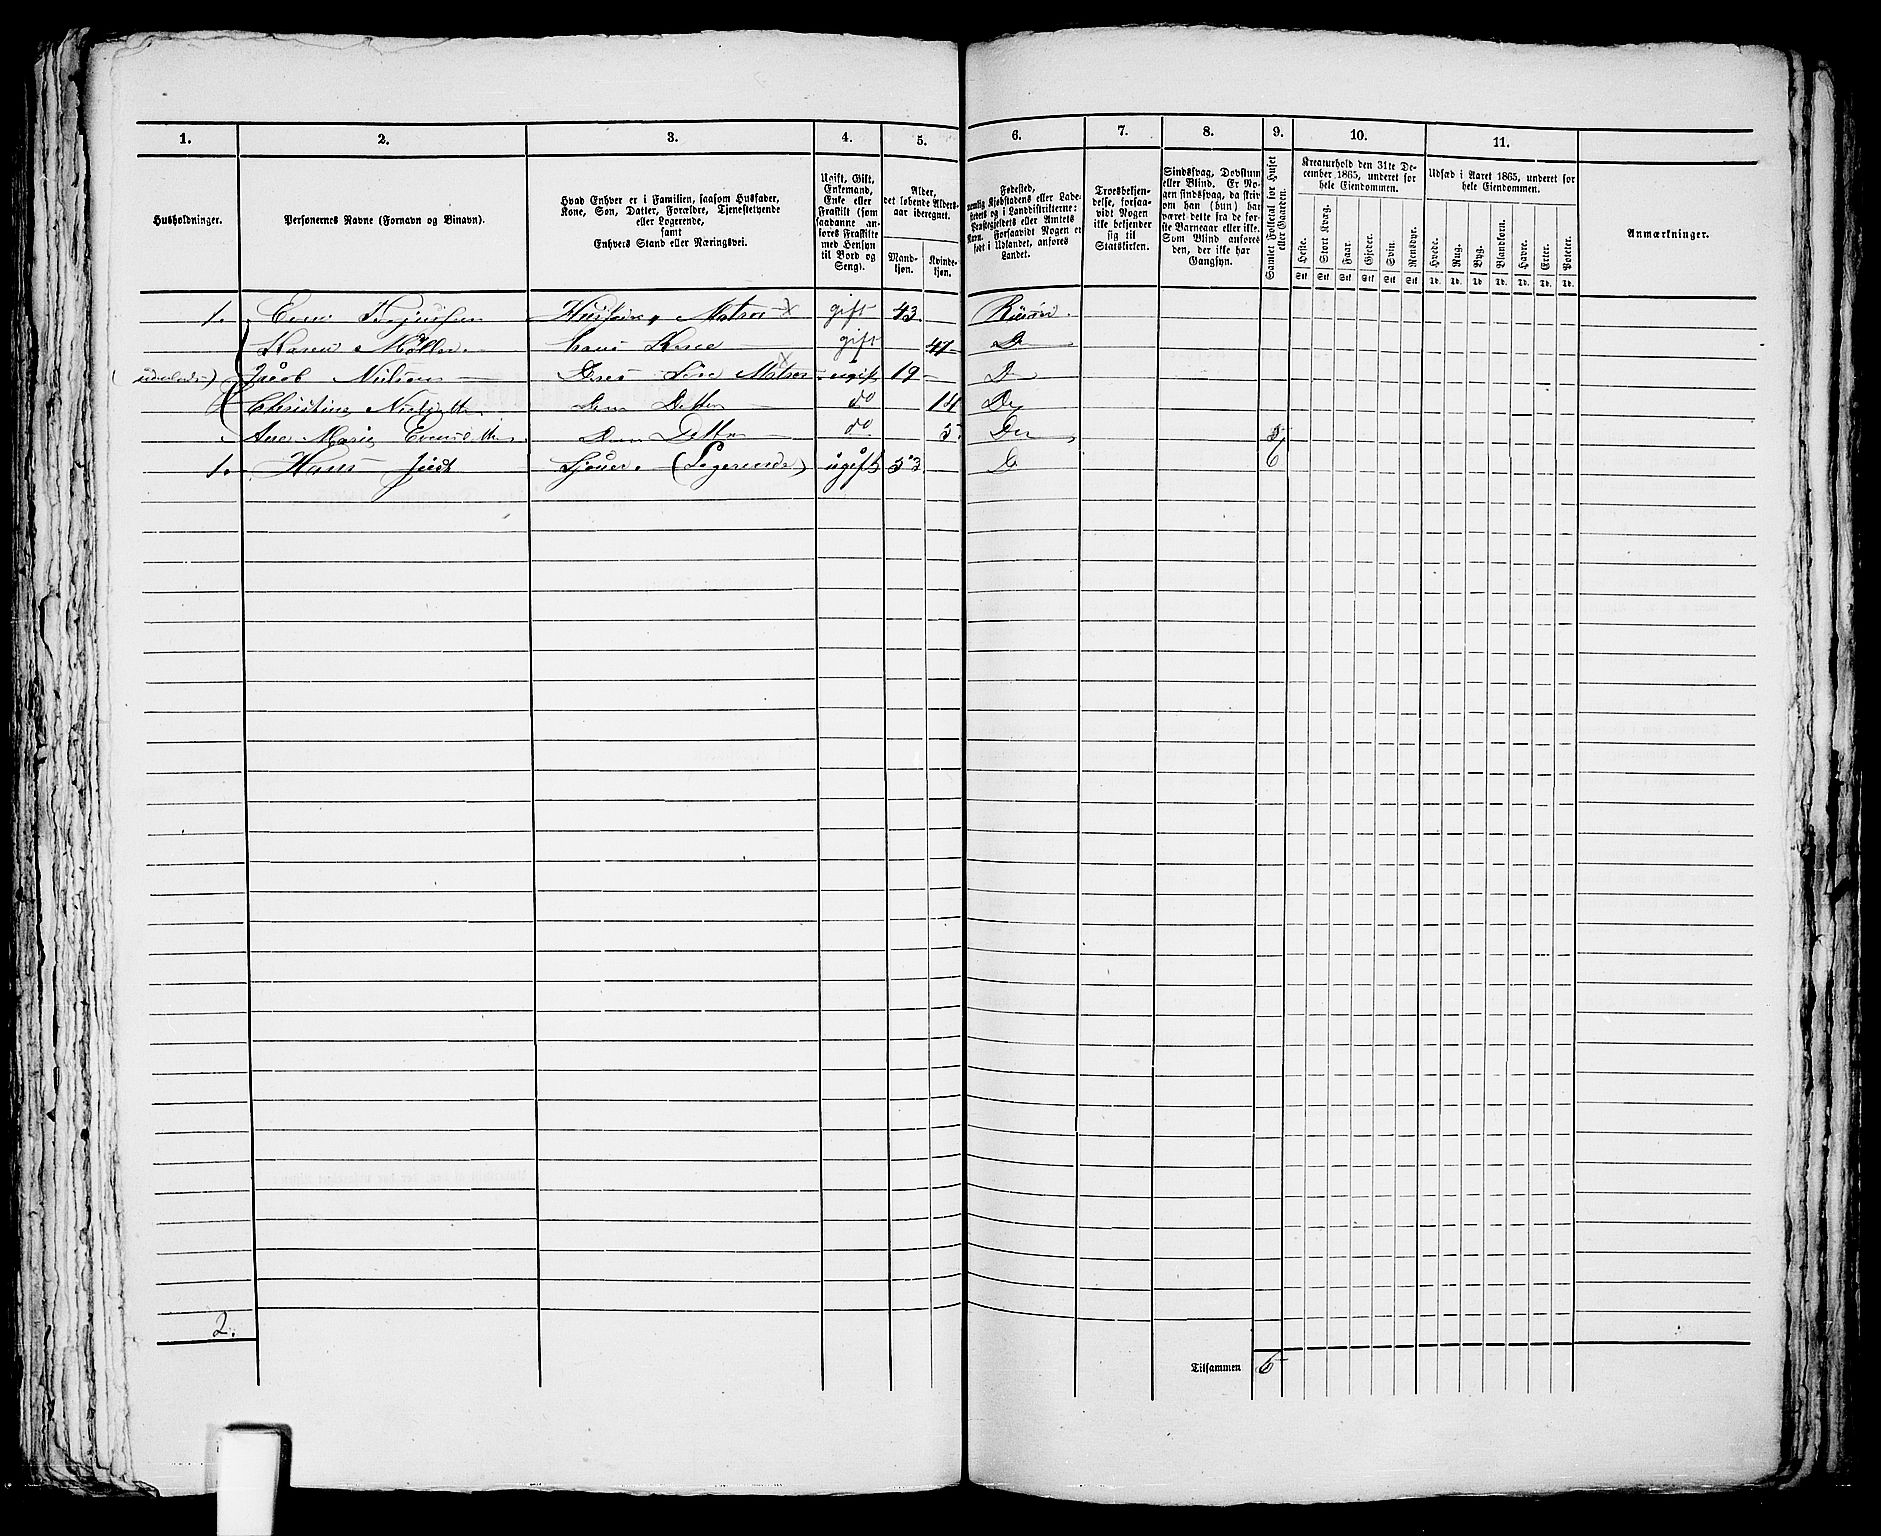 1. 2. 3. 4. 5. 6. 7. 8. 9. 10. 11.
Husholdninger.
Personernes Navne (Fornavn og Binavn).
Hvad Enhver er i Familien, saasom Husfader,
Kone, Søn, Datter, Forældre, Tjenestetyende
eller Logerende,
samt
Enhvers Stand eller Næringsvei.
Ugift, Gift,
Enkemand,
Enke eller
Fraskilt (som
saadanne an-
føres Fraskilte
med Hensyn
til Bord og
Seng).
Alder,
det løbende Alders-
aar iberegnet.
Mand-
kjøn.
Kvinde-
kjøn.
Fødested,
nemlig Kjøbstadens eller Lade-
stedets og i Landdistrikterne:
Præstegjeldets eller Amtets
Navn. Forsaavidt Nogen er
født i Udlandet, anføres
Landet.
Troesbekjen-
delse, forsaa-
vidt Nogen
ikke bekjender
sig til
Statskirken.
Sindssvag, Døvstum
eller Blind. Er No-
gen sindssvag, da skriv
om han (hun) har
været dette fra de før-
ste Barneaar eller ikke.
Som Blind anføres
den, der ikke har
Gangsyn.
Samlet Folketal for Huset
eller Gaarden.
Kreaturhold den 31te De-
cember 1865, underet for
hele Eiendommen.
Heste. Stort Kvæg. Faar. Gjeder. Svin. Rensdyr.
Stk Stk Stk Stk Stk Stk
Udsæd i Aaret 1865, underet for
hele Eiendommen.
Hvede. Rug. Byg. Blandkorn. Havre. Erter. Poteter.
Td. Td. Td Td. Td. Td. Td.
Anmærkninger.
1. Even Husfader, Matros x gift 43 Risøer.
Karen Møller hans Kone gift 47 Do
(udenlands) Jacob Nielsen Deres Søn Matros x ugift 19 Do
Christine Nielsdtt Datter do 14 Do
Ane Marie Evensdtt Datter do 5 Do 5
1. Hans Judt Sjouer (Logerende) ugift 53 Do 6
2.
Tilsammen 6